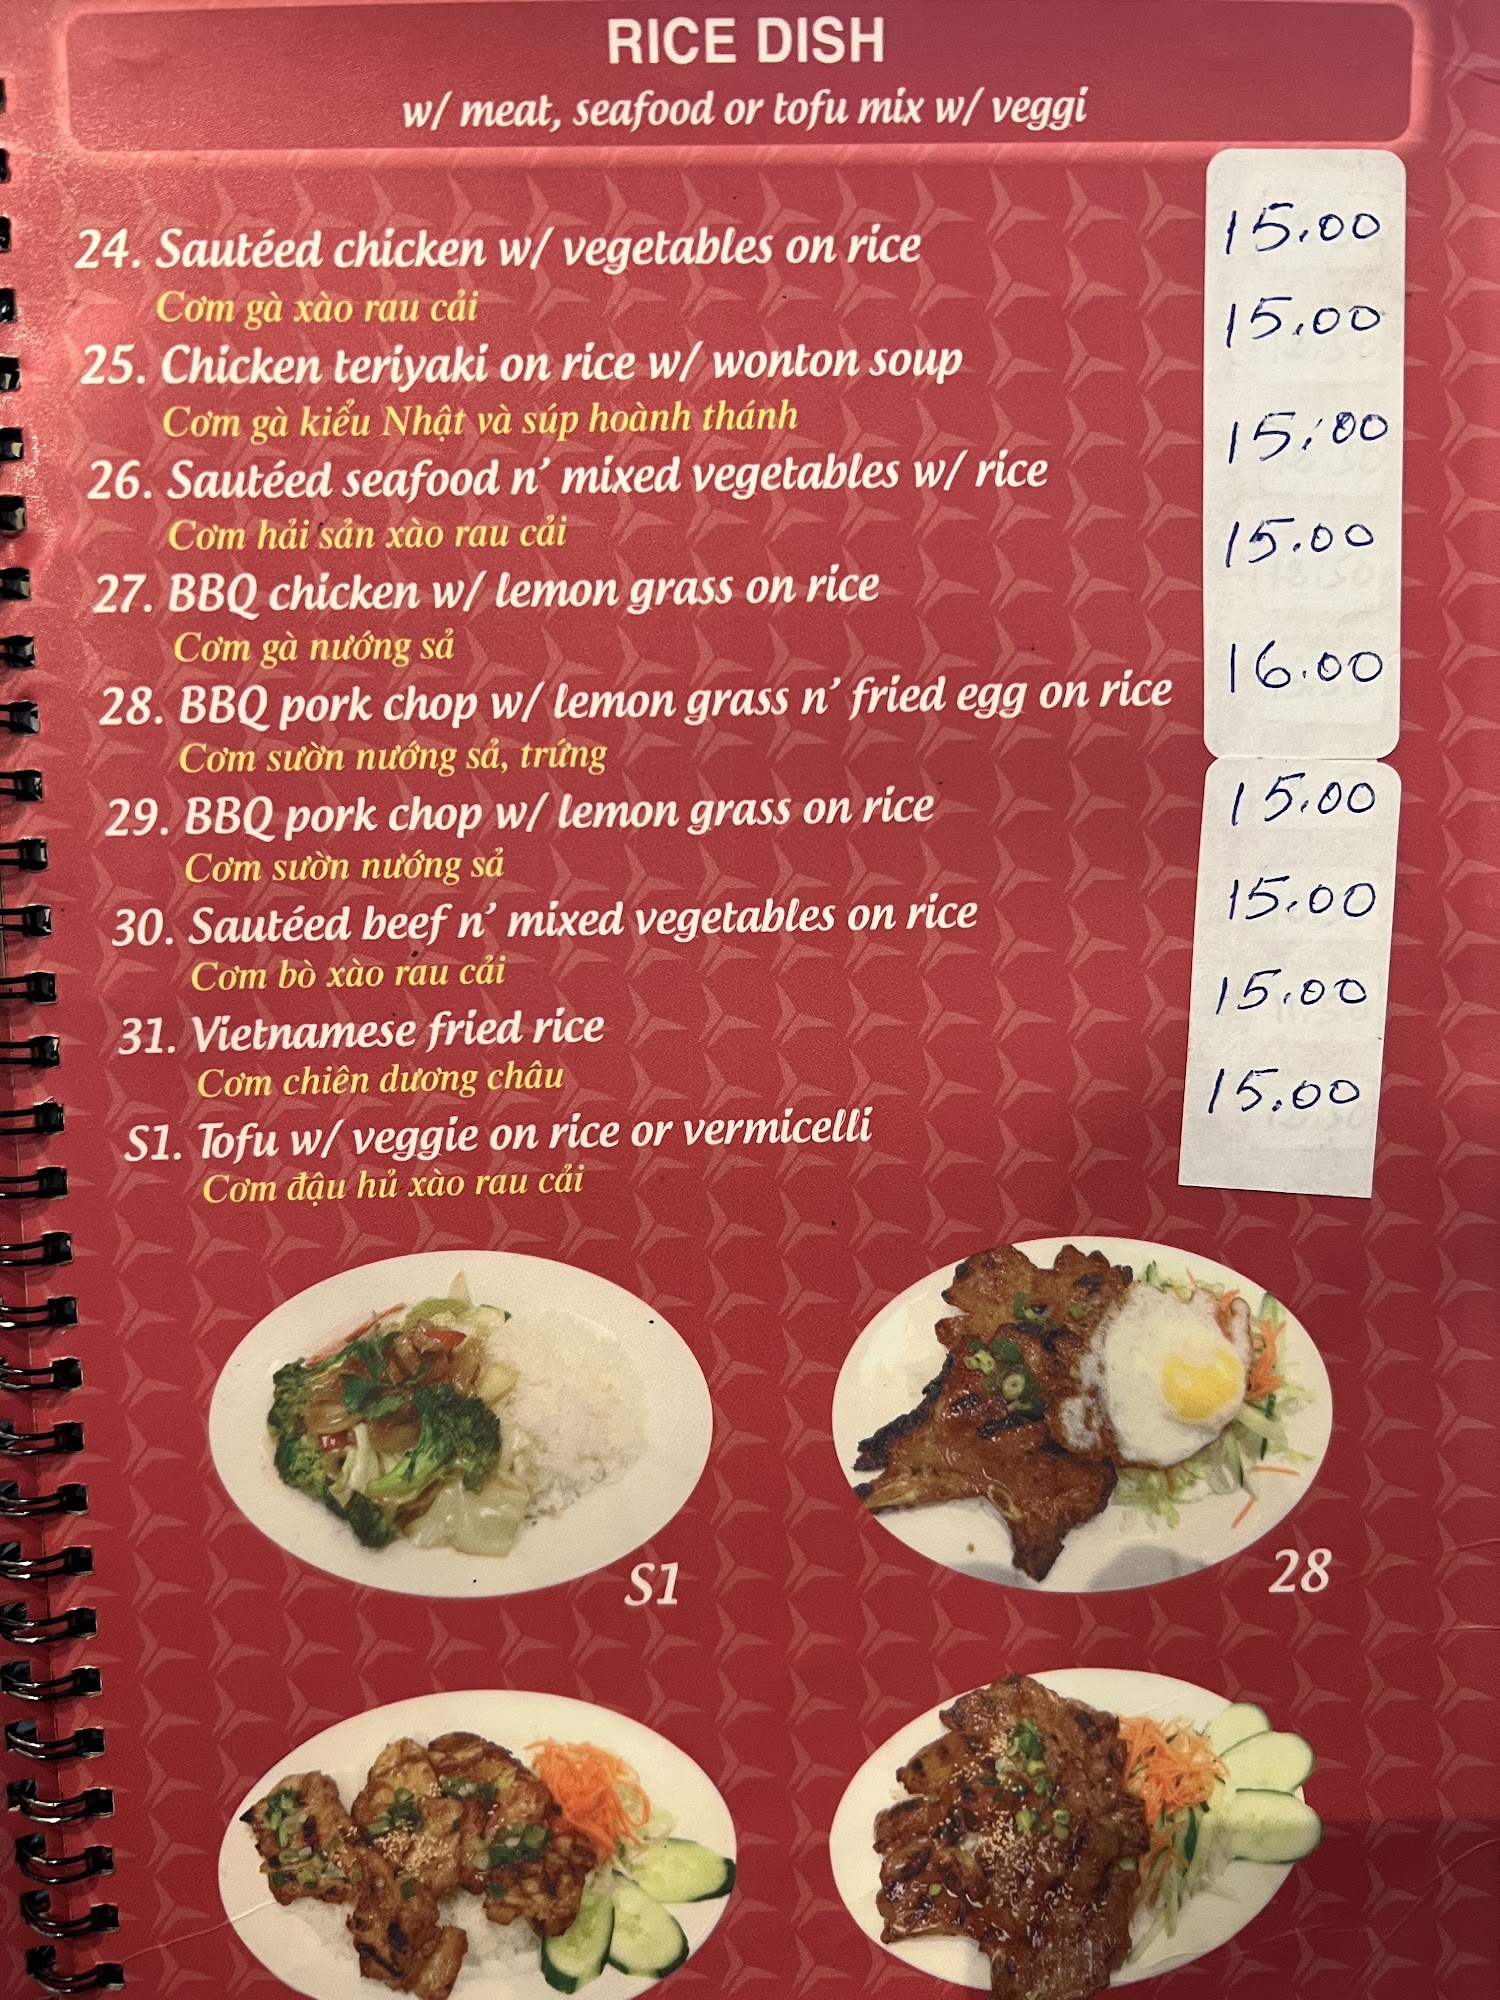 RICE DISH
w/ meat, seafood or tofu mix w/ veggi
24. Sautéed chicken w/ vegetables on rice 15.00
Cơm gà xào rau cải
25. Chicken teriyaki on rice w/ wonton soup 15.00
Cơm gà kiểu Nhật và súp hoành thánh
26. Sautéed seafood n' mixed vegetables w/ rice 15.00
Cơm hải sản xào rau cải
27. BBQ chicken w/ lemon grass on rice 15.00
Cơm gà nướng sả
28. BBQ pork chop w/ lemon grass n' fried egg on rice 16.00
Cơm sườn nướng sả, trứng
29. BBQ pork chop w/ lemon grass on rice 15.00
Cơm sườn nướng sả
30. Sautéed beef n' mixed vegetables on rice 15.00
Cơm bò xào rau cải
31. Vietnamese fried rice 15.00
Cơm chiên dương châu
S1. Tofu w/ veggie on rice or vermicelli 15.00
Cơm đậu hủ xào rau cải
S1
28